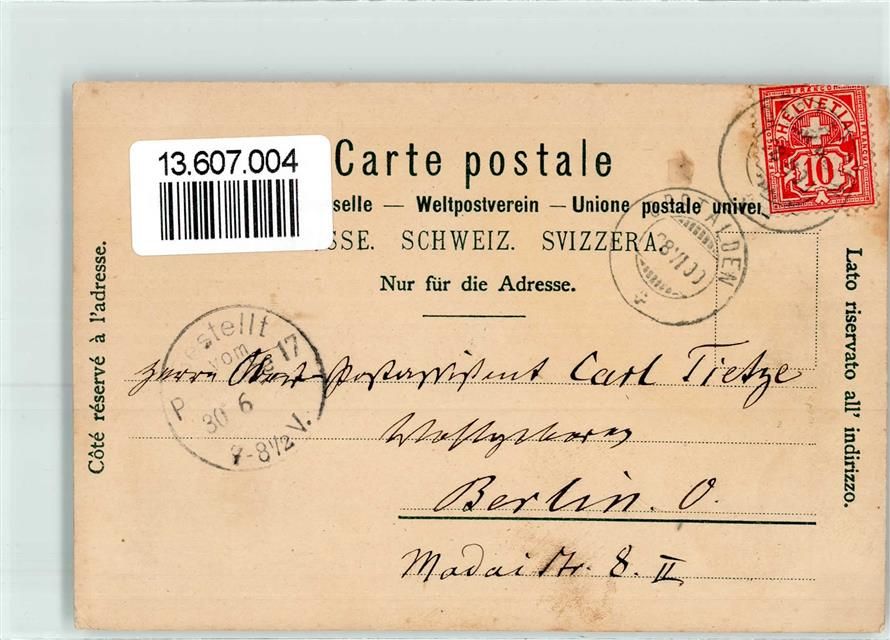 13.607.004
Carte postale
selle — Weltpostverein — Unione postale univer
SSE. SCHWEIZ. SVIZZERA.
Nur für die Adresse.
Côté réservé à l'adresse.
Lato riservato all' indirizzo.
FRANCO
HELVETIA
10
28 VI 00
estellt
vom
17
P
30 6
7-8½ V.
Herrn Ober-Postassistent Carl Tietze
Berlin. O.
Madai Str. 8. II